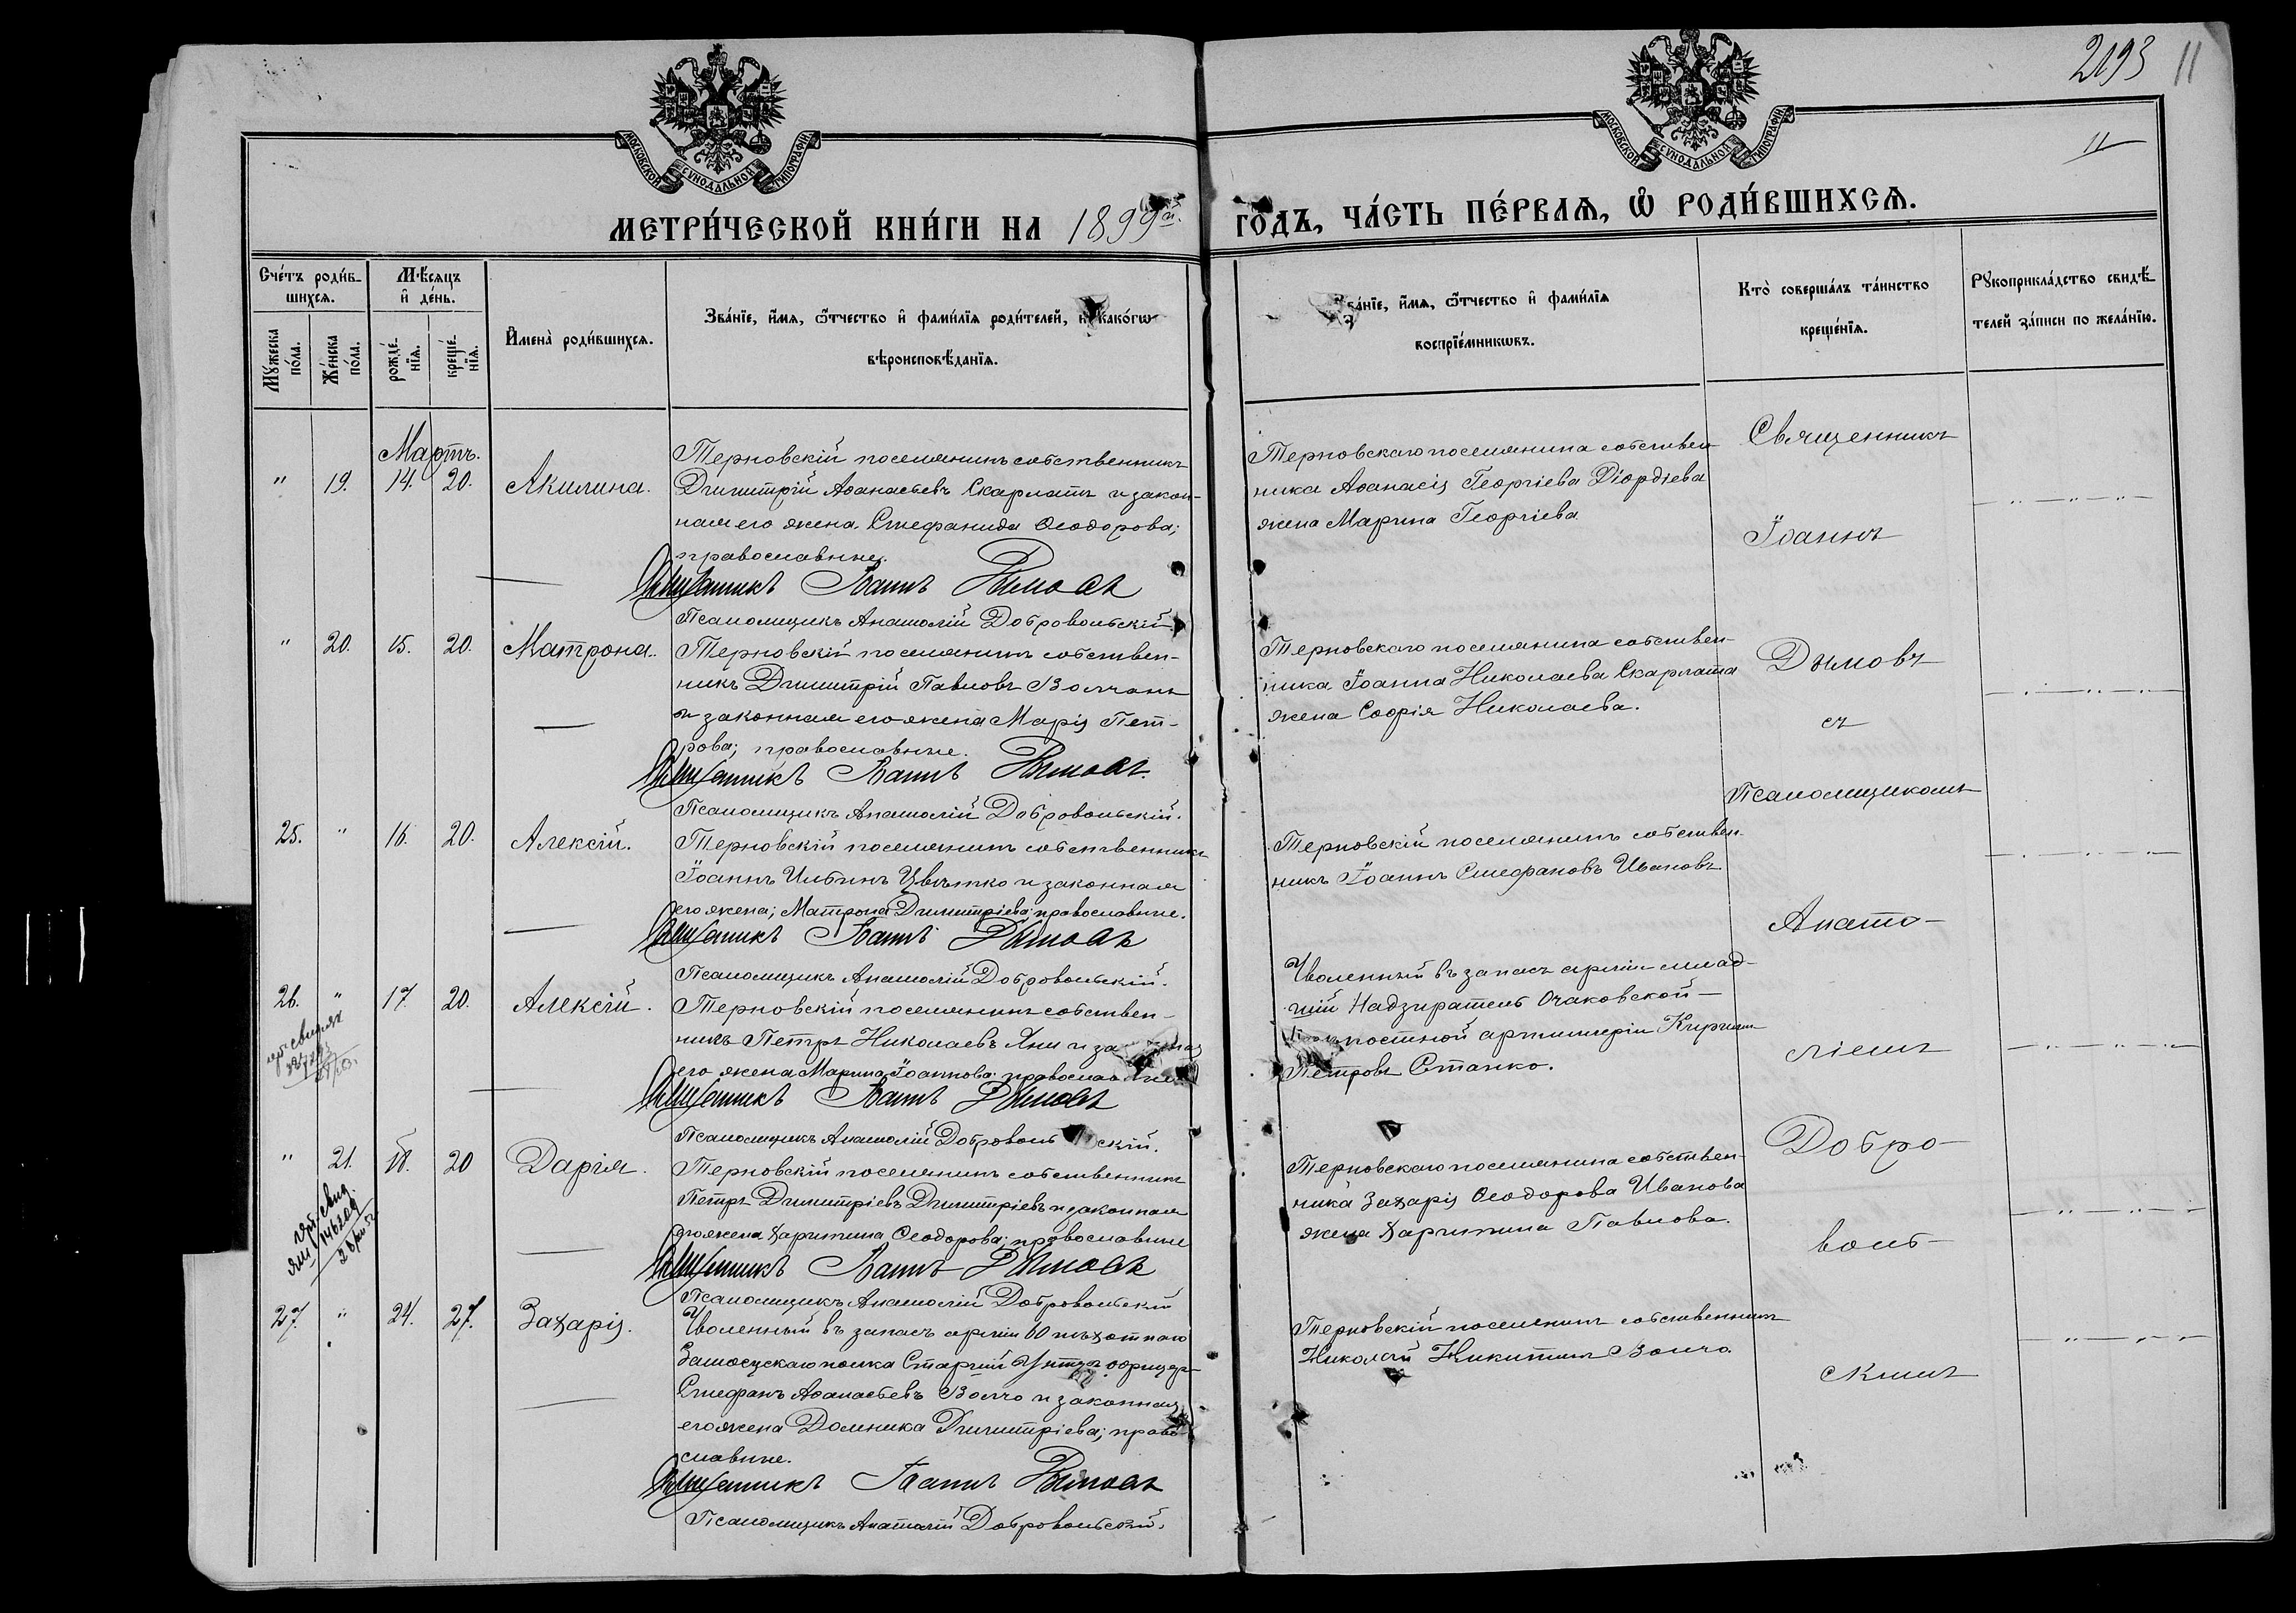 2193 11
11
МОСКОВСКОЙ СѴНОДАЛЬНОЙ ТИПОГРАФІИ
МОСКОВСКОЙ СѴНОДАЛЬНОЙ ТИПОГРАФІИ
МЕТРИ́ЧЕСКОЙ КНИ́ГИ НА 1899й. ГОДЪ, ЧА́СТЬ ПЕ́РВАѦ, Ѡ҆ РОДИ́ВШИХСѦ.
Сче́тъ роди́в-
шихсѧ.
Мѣ́сѧцъ
и҆ де́нь.
Мꙋ́жеска по́ла.
Же́нска по́ла.
рожде́нїѧ.
креще́нїѧ.
И҆мена̀ роди́вшихсѧ.
Зва́нїе, и҆́мѧ, ѻ҆́тчество и҆ фами́лїѧ роди́телей, и҆ како́гѡ
вѣроисповѣ́данїѧ.
Зва́нїе, и҆́мѧ, ѻ҆́тчество и҆ фами́лїѧ
воспрїе́мникѡвъ.
Кто̀ соверша́лъ та́инство
креще́нїѧ.
Рꙋкоприкла́дство свидѣ́-
телей за́писи по жела́нїю.
Мартъ.
" 19. 14. 20. Акилина.
Терновскій поселянинъ собственникъ
Димитрій Аѳанасьевъ Скарлатъ и закон-
ная его жена Стефанида Ѳеодорова;
православные.
Священникъ Іоаннъ Дымовъ
Псаломщикъ Анатолій Добровольскій
Терновскаго поселянина собствен
ника Аѳанасія Георгіева Діордіева
жена Марина Георгіева
" 20. 15. 20. Матрона.
Терновскій поселянинъ собствен-
никъ Димитрій Павловъ Волчанъ
и законная его жена Марія Пет-
рова; православные.
Священникъ Іоаннъ Дымовъ.
Псаломщикъ Анатолій Добровольскій.
Терновскаго поселянина собствен-
ника Іоанна Николаева Скарлата
жена Софія Николаева.
25. " 16. 20. Алексій.
Терновскій поселянинъ собственникъ
Іоаннъ Ильинъ Цвѣтко и законная
его жена; Матрона Димитріева; православные.
Священникъ Іоаннъ Дымовъ
Псаломщикъ Анатолій Добровольскій.
Терновскій поселянинъ собствен
никъ Іоаннъ Стефановъ Ивановъ
26. " 17. 20. Алексій.
Терновскій поселянинъ собствен-
никъ Петръ Николаевъ Яни и
его жена Марина Іоаннова;
Священникъ Іоаннъ Дымовъ
Псаломщикъ Анатолій скій.
Уволенный въ запасъ арміи млад-
шій Надзиратель Очаковской
артиллеріи
Петровъ Станко.
" 21. 18. 20 Дарія.
Терновскій поселянинъ собственникъ
Петръ Димитріевъ Димитріевъ и законная
его жена Харитина Ѳеодорова; православные
Священникъ Іоаннъ Дымовъ
Псаломщикъ Анатолій Добровольскій
Терновскаго поселянина собствен-
ника Захарія Ѳеодорова Иванова
жена Харитина Павлова.
27. " 24. 27. Захарія.
Уволенный въ запасъ арміи 60 пѣхотнаго
Замосцскаго полка Старшій Унтеръ офицеръ
Стефанъ Аѳанасьевъ Волчо и законная
его жена Домника Димитріева; право
славные.
Священникъ Іоаннъ Дымовъ
Псаломщикъ Анатолій Добровольскій.
Терновскій поселянинъ собственникъ
Николай Никитинъ Волчо.
Священникъ
Іоаннъ
Дымовъ
съ
Псаломщикомъ
Анато-
ліемъ
Добро-
воль-
скимъ